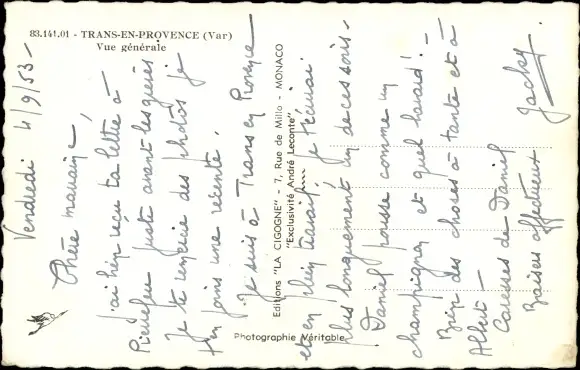 83.141.01 - TRANS-EN-PROVENCE (Var)
Vue générale
Editions "LA CIGOGNE" - 7, Rue de Millo - MONACO
"Exclusivité André Leconte"
Photographie Véritable
Vendredi 4/9/53 -
Chère marraine,
j'ai bien reçu ta lettre à
Pierrefeu juste avant les
Je te remercie des photos je
t'en joins une récente.
Je suis à Trans en Provence
et en plein travail. je t'écrirai
plus longuement un de ces soirs -
Daniel pousse comme un
champignon et quel bavard! -
Bien des choses à tante et à
Albert -
Caresses de Daniel
Baisers affectueux
Jacky